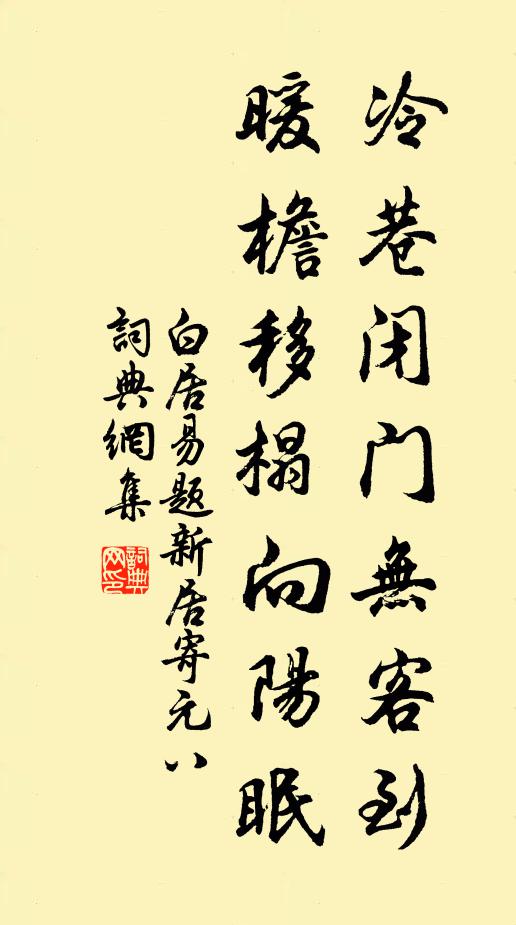 冷巷闭门無客到
暖檐移榻向陽眠
白居易題新居寄元八
詞典網集
詞典网印